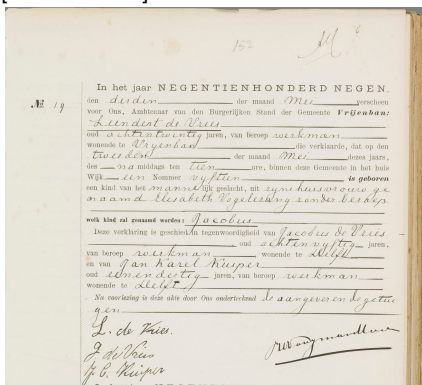 152
In het jaar NEGENTIENHONDERD NEGEN,
No. 19.
den derden der maand Mei verscheen
voor Ons, Ambtenaar van den Burgerlijken Stand der Gemeente Vrijenban:
Leendert de Vries
oud achtentwintig jaren, van beroep werkman
wonende te Vrijenban die verklaarde, dat op den
tweeden der maand Mei dezes jaars,
des na middags ten tien ure, binnen deze Gemeente in het huis
Wijk een Nommer vijftien is geboren
een kind van het mannelijk geslacht, uit zijne huisvrouwe ge
naamd Elisabeth Vogelezang zonder beroep
welk kind zal genaamd worden: Jacobus
Deze verklaring is geschied in tegenwoordigheid van Jacobus de Vries
oud achtenvijftig jaren,
van beroep werkman wonende te Delft
en van Jan Karel Kuiper
oud eenendertig jaren, van beroep werkman
wonende te Delft.
Na voorlezing is deze akte door Ons onderteekend de aangever en de getui
gen
L. de Vries.
J de Vries
J. C. Kuiper